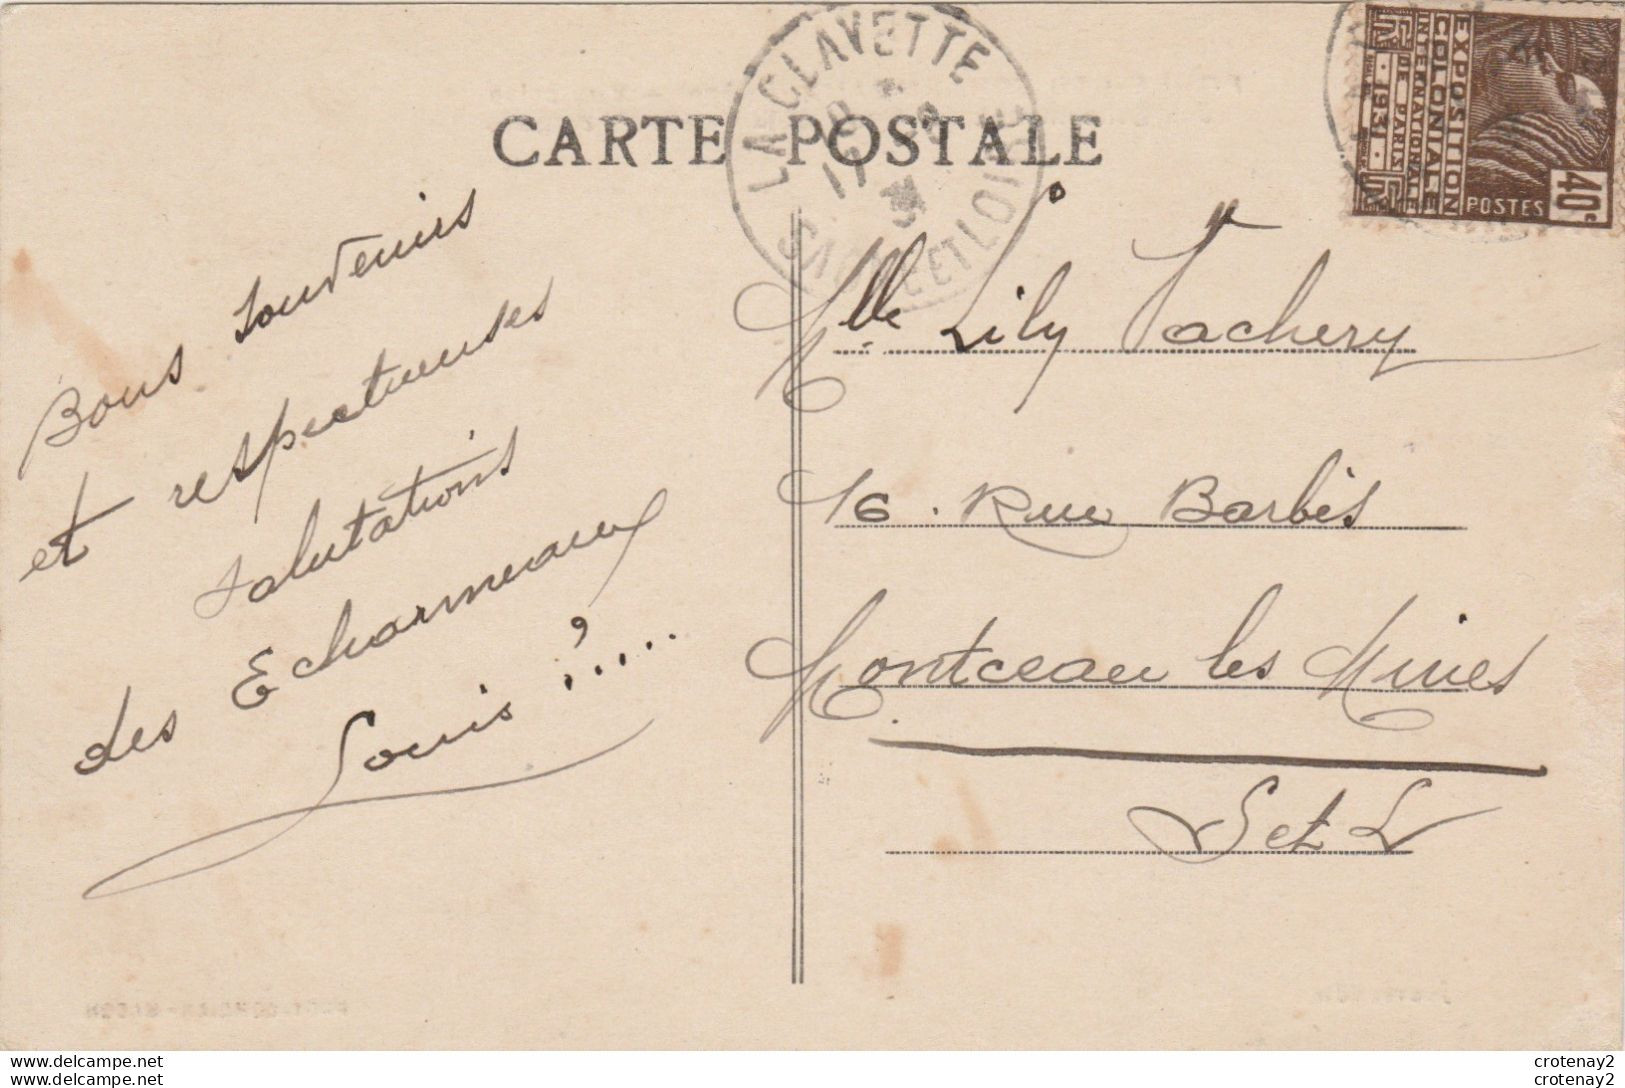 CARTE POSTALE
LA CLAYETTE
EXPOSITION
COLONIALE
INTERNATIONALE
DE PARIS
1931
POSTES
40c
Bons souvenirs
et respectueuses
salutations
des Echarmeaux
Louis !.....
Mlle Lily Vachery
16. Rue Barbès
Montceau les Mines
S et L
www.delcampe.net
www.delcampe.net
crotenay2
crotenay2